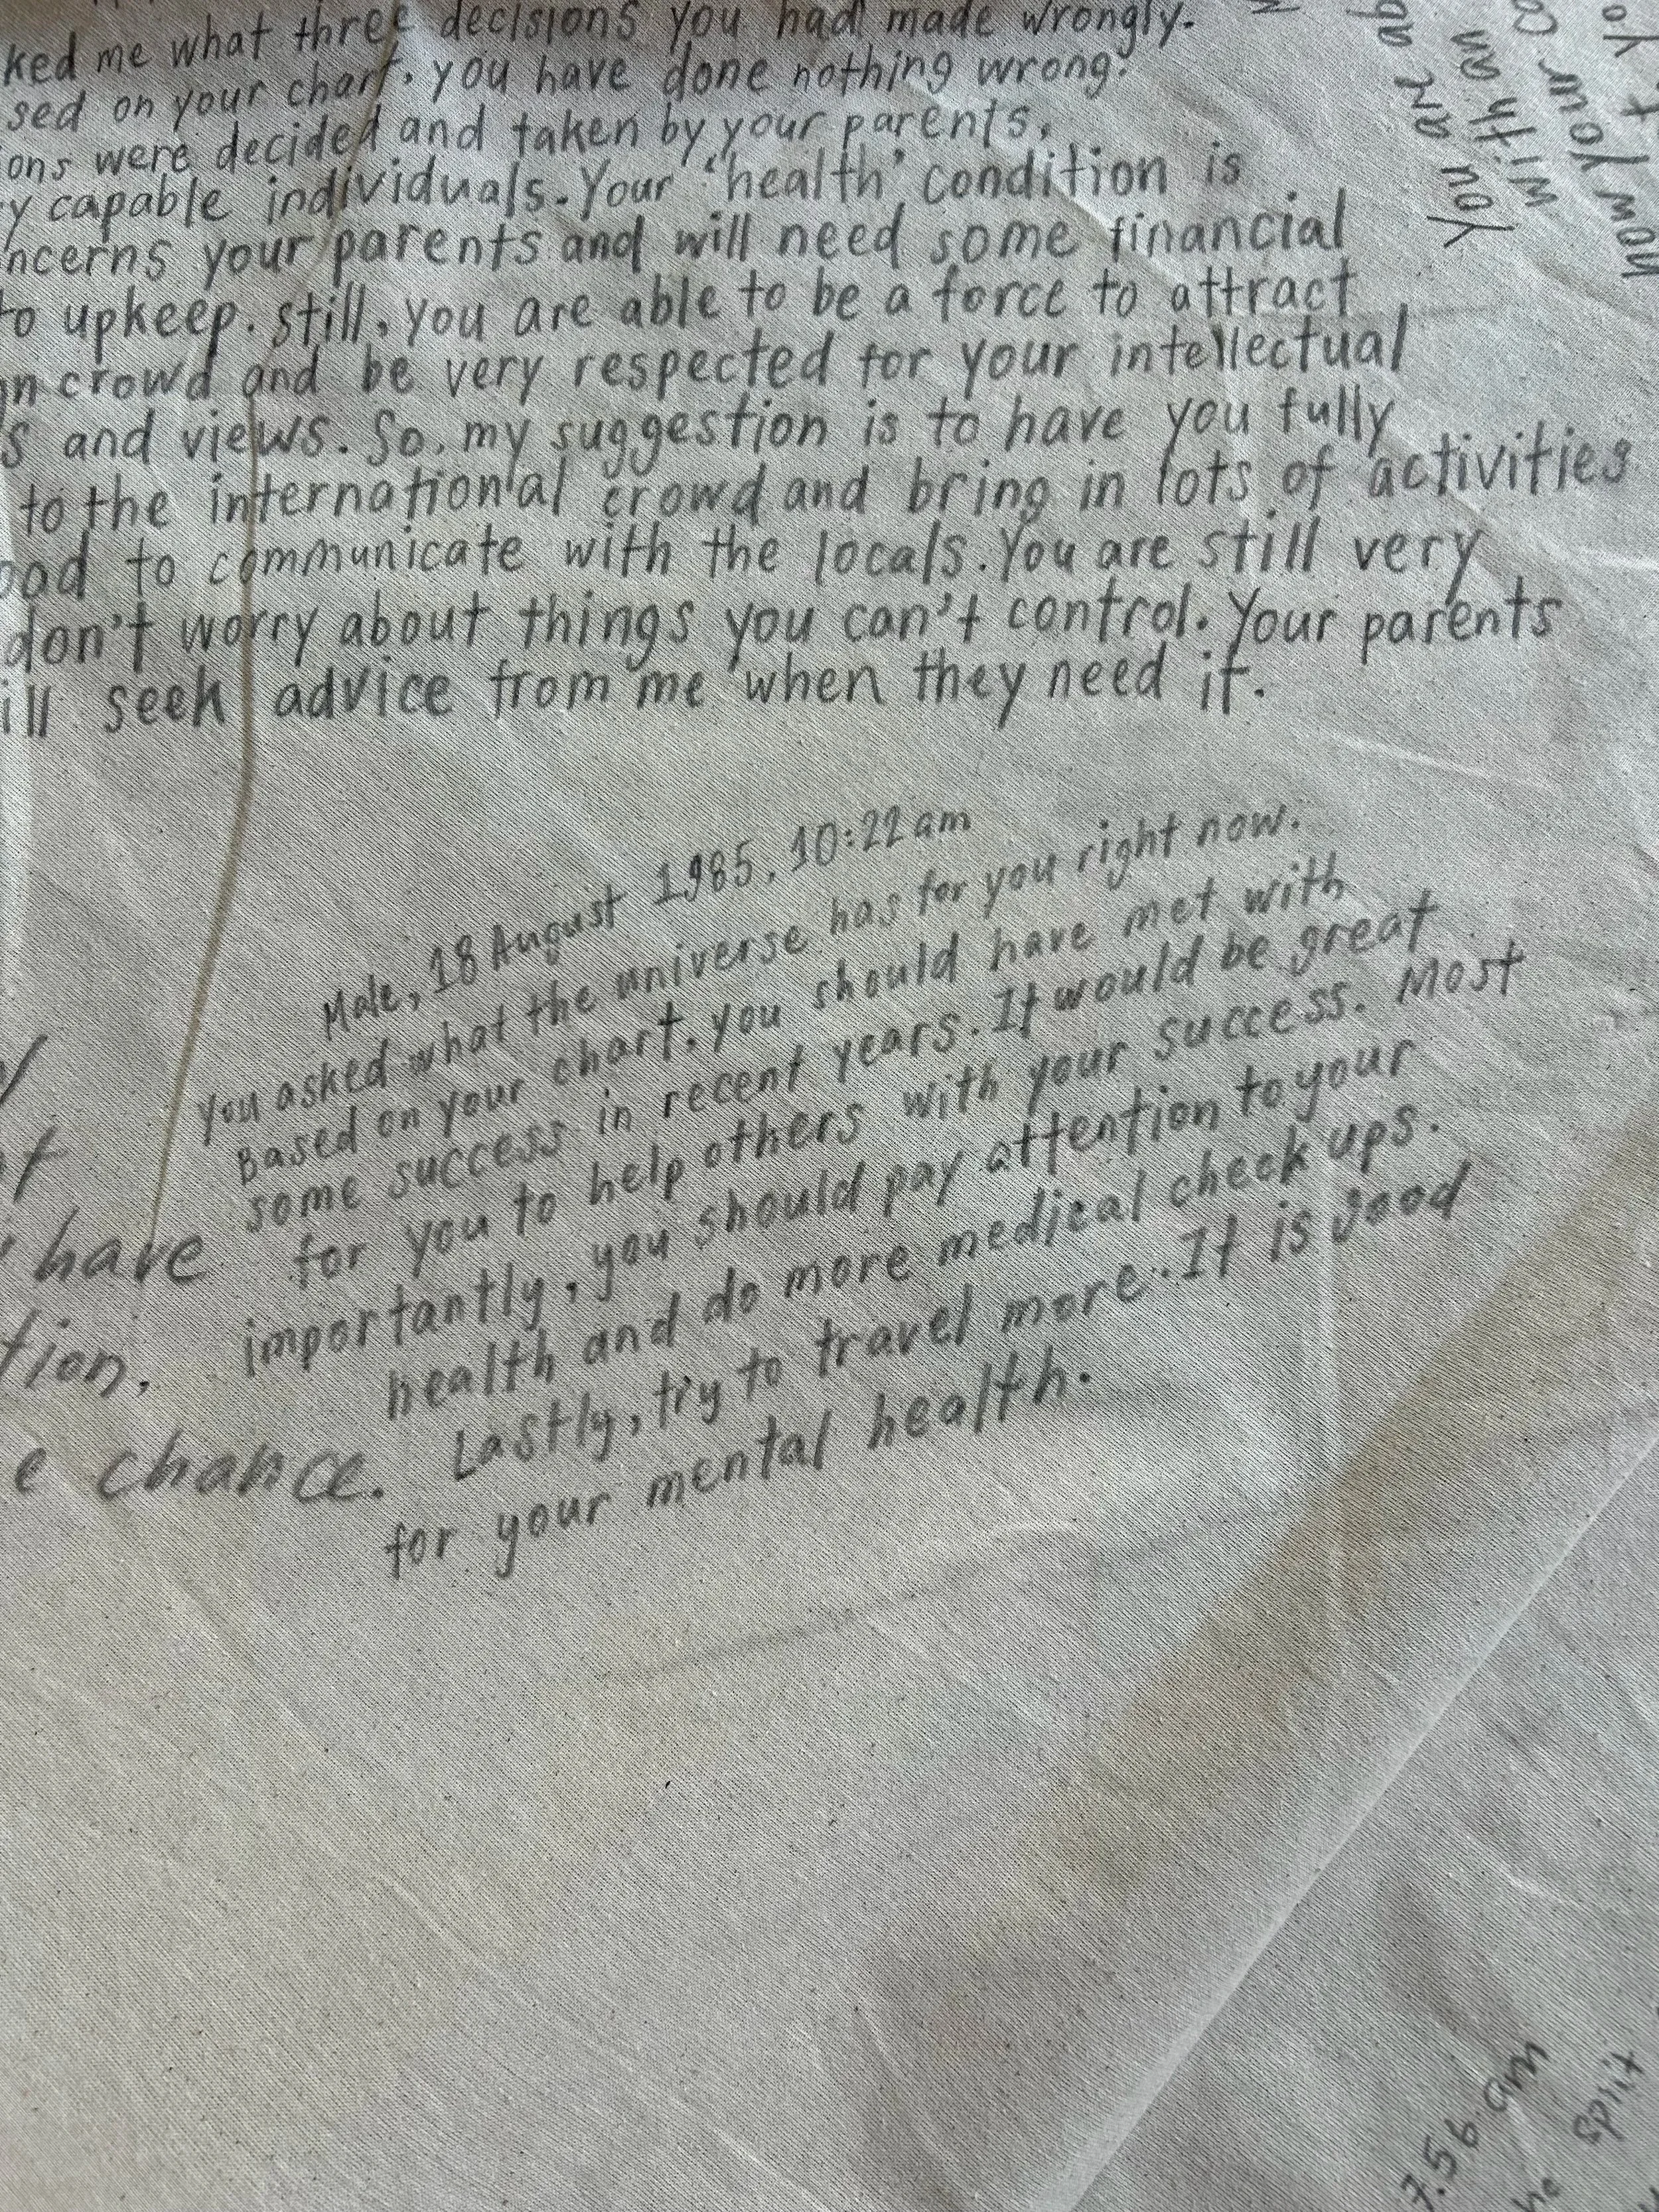 ked me what three decisions you had made wrongly.
sed on your chart, you have done nothing wrong.
ons were decided and taken by your parents,
y capable individuals. Your 'health' condition is
ncerns your parents and will need some financial
to upkeep. Still, you are able to be a force to attract
gn crowd and be very respected for your intellectual
s and views. So, my suggestion is to have you fully
to the international crowd and bring in lots of activities
ood to communicate with the locals. You are still very
don't worry about things you can't control. Your parents
ill seek advice from me when they need it.
Male, 18 August 1985, 10:22 am
You asked what the universe has for you right now.
Based on your chart, you should have met with
some success in recent years. It would be great
for you to help others with your success. Most
importantly, you should pay attention to your
health and do more medical check ups.
Lastly, try to travel more. It is good
for your mental health.
have
tion,
e chance.
You are
with an
how your
7.56 am
Split